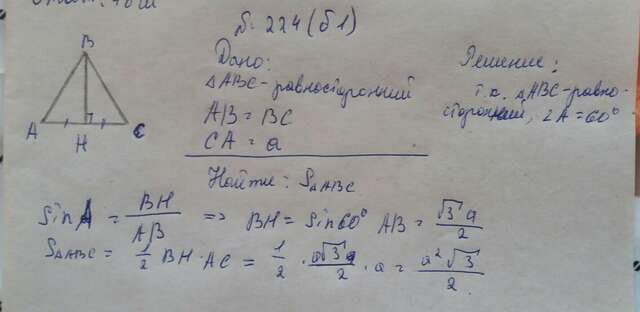 № 224 (б1)
B
A
H
C
Дано:
△ABC - равносторонний
AB = BC
CA = a
Найти: S△ABC
Решение:
т.к. △ABC - равно-
сторонний, ∠A = 60°
Sin A = BH/AB => BH = Sin 60° AB = √3 a/2
S△ABC = 1/2 BH · AC = 1/2 · a√3/2 · a = a²√3/2.